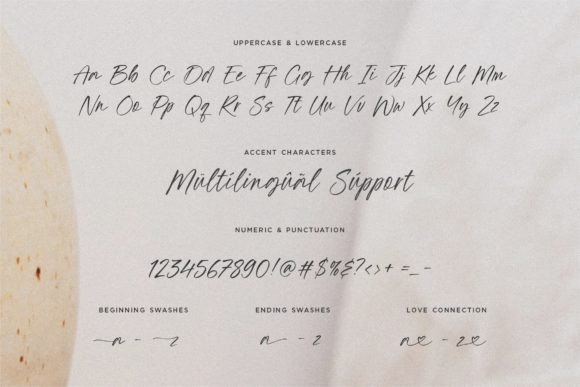 UPPERCASE & LOWERCASE
Aa Bb Cc Dd Ee Ff Gg Hh Ii Jj Kk Ll Mm
Nn Oo Pp Qq Rr Ss Tt Uu Vv Ww Xx Yy Zz
ACCENT CHARACTERS
Mültílingûãl Súpport
NUMERIC & PUNCTUATION
1234567890!@#$%&?<>+ =_-
BEGINNING SWASHES ENDING SWASHES LOVE CONNECTION
a - z a - z a - z